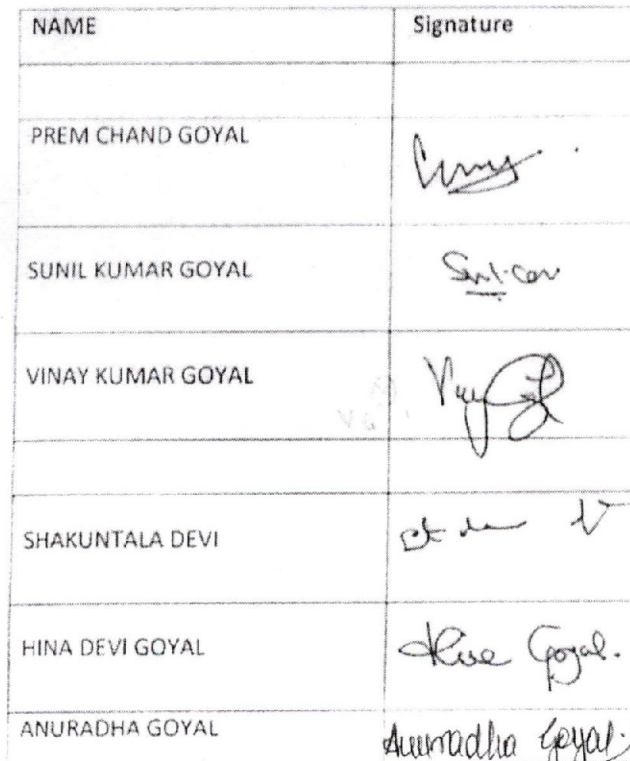 NAME Signature
PREM CHAND GOYAL
SUNIL KUMAR GOYAL
VINAY KUMAR GOYAL
SHAKUNTALA DEVI
HINA DEVI GOYAL Goyal.
ANURADHA GOYAL Anuradha Goyal